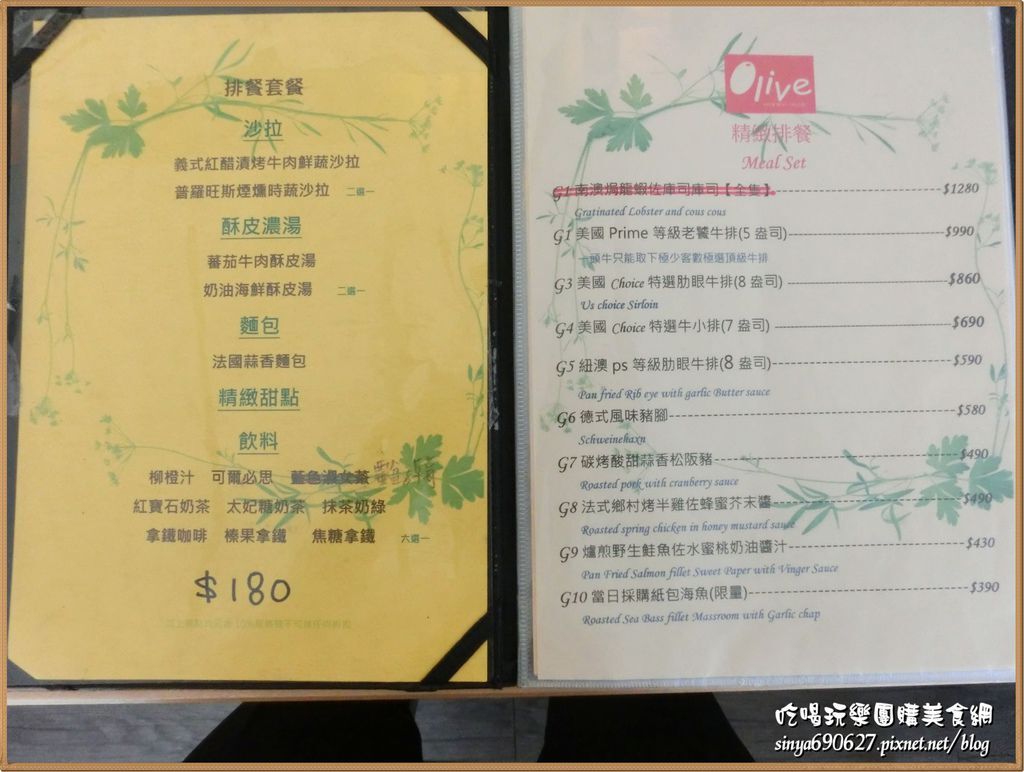 排餐套餐
沙拉
義式紅醋漬烤牛肉鮮蔬沙拉
普羅旺斯煙燻時蔬沙拉 二選一
酥皮濃湯
蕃茄牛肉酥皮湯
奶油海鮮酥皮湯 二選一
麵包
法國蒜香麵包
精緻甜點
飲料
柳橙汁 可爾必思 藍色淑女茶
紅寶石奶茶 太妃糖奶茶 抹茶奶綠
拿鐵咖啡 榛果拿鐵 焦糖拿鐵 六選一
$180
Olive
精緻排餐
Meal Set
G1 南澳焗龍蝦佐庫司庫司【全隻】 $1280
Gratinated Lobster and cous cous
G1 美國 Prime 等級老饕牛排(5 盎司) $990
一頭牛只能取下極少客數極選頂級牛排
G3 美國 Choice 特選肋眼牛排(8 盎司) $860
Us choice Sirloin
G4 美國 Choice 特選牛小排(7 盎司) $690
G5 紐澳 ps 等級肋眼牛排(8 盎司) $590
Pan fried Rib eye with garlic Butter sauce
G6 德式風味豬腳 $580
Schweinehaxn
G7 碳烤酸甜蒜香松阪豬 $490
Roasted pork with cranberry sauce
G8 法式鄉村烤半雞佐蜂蜜芥末醬 $490
Roasted spring chicken in honey mustard sauce
G9 爐煎野生鮭魚佐水蜜桃奶油醬汁 $430
Pan Fried Salmon fillet Sweet Paper with Vinger Sauce
G10 當日採購紙包海魚(限量) $390
Roasted Sea Bass fillet Massroom with Garlic chap
吃喝玩樂團購美食網
sinya690627.pixnet.net/blog